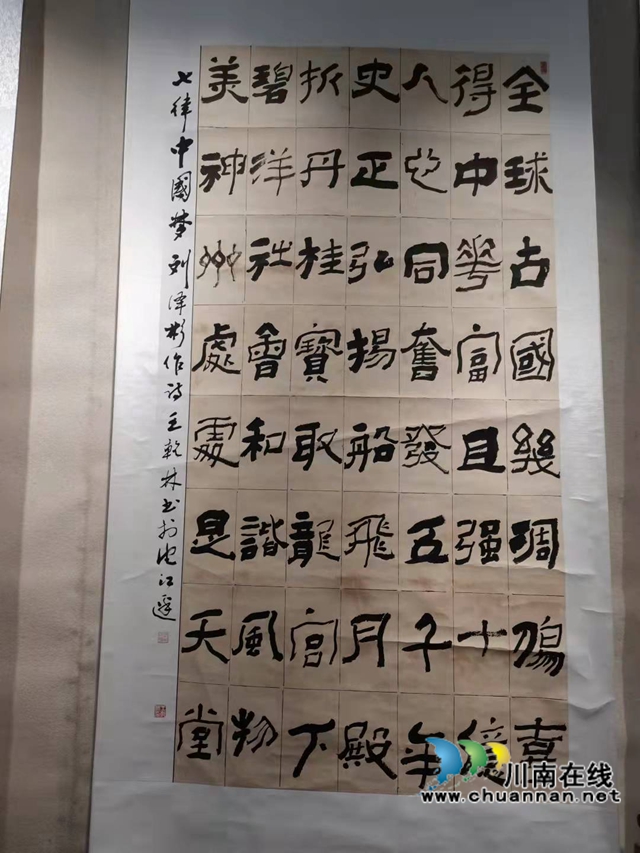 全球古國幾凋喜
得中華富且强十億
人心同奮發五千年
史正弘揚船飛月殿
折丹桂寶取龍宮下
碧洋社會和諧風物
美神州處處是天堂
七律中國夢刘泽彬作诗王乾林书於沱江邊
川南在线
www.chuannan.net